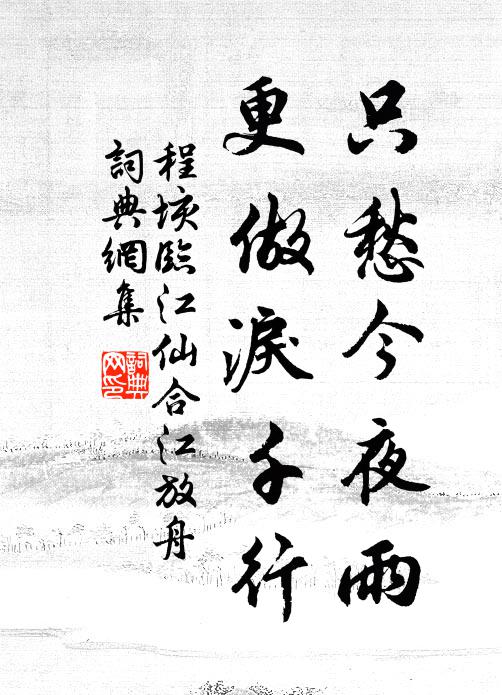 只愁今夜雨
更做淚千行
程垓臨江仙合江放舟
詞典網集
詞典
网印